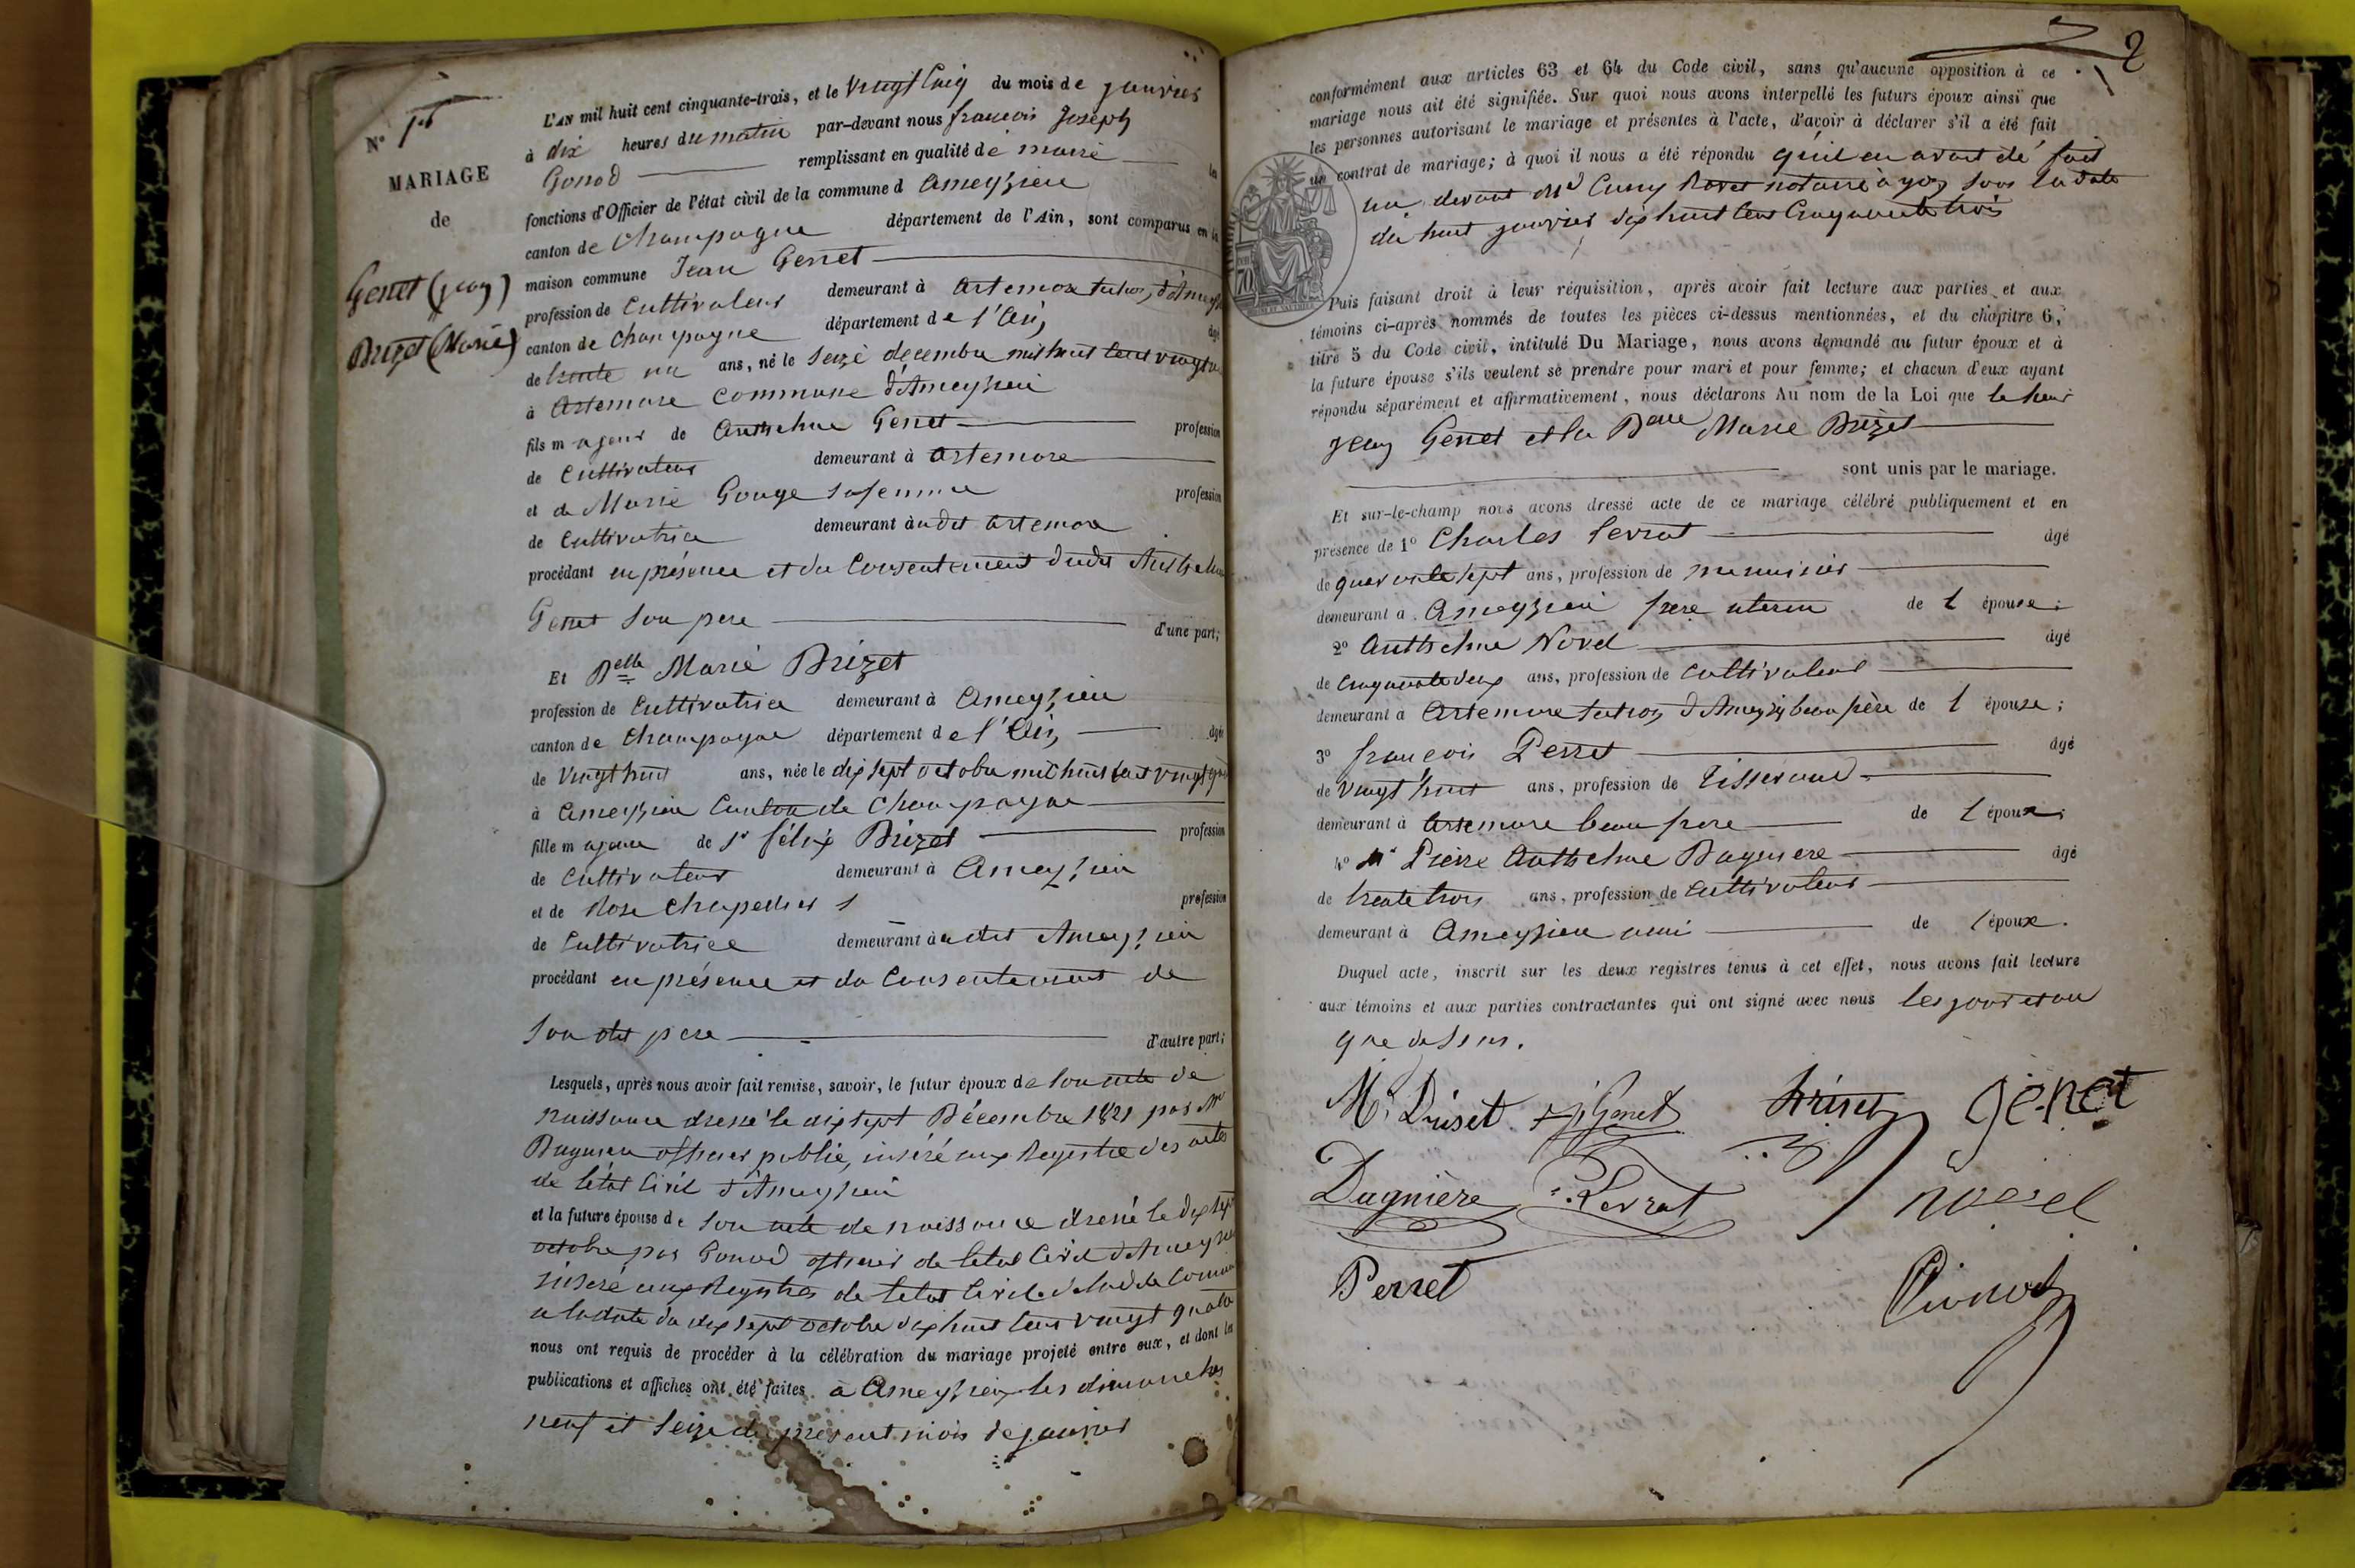 N° 1er
MARIAGE
de
Genet (jean)
Brizet (Marie)
L'AN mil huit cent cinquante-trois, et le vingt cinq du mois de janvier
à dix heures du matin par-devant nous françois Joseph
Gonod remplissant en qualité de maire les
fonctions d'Officier de l'état civil de la commune d Ameyzieu
canton de Champagne département de l'Ain, sont comparus en la
maison commune Jean Genet
profession de Cultivateur demeurant à Artemare
canton de Champagne département de l'Ain, âgé
de trente un ans, né le seize decembre mil huit cent vingt un
à Artemare Commune d'Ameyzieu
fils majeur de Anthelme Genet profession
de Cultivateur demeurant à Artemare
et de Marie Gouge sa femme profession
de Cultivatrice demeurant à udit artemare
procédant en présence et du Consentement dudit Anthelme
Genet son pere d'une part;
Et Delle Marie Brizet
profession de Cultivatrice demeurant à Ameyzieu
canton de Champagne département de l'Ain, âgée
de vingt huit ans, née le dix sept octobre mil huit cent vingt quatre
à Ameyzieu Canton de Champagne
fille majeure de Sr félix Brizet profession
de Cultivateur demeurant à Ameyzieu
et de Rose Chapellier profession
de Cultivatrice demeurant à udit Ameyzieu
procédant en présence et du Consentement de
son dit pere d'autre part;
Lesquels, après nous avoir fait remise, savoir, le futur époux de son acte de
naissance dressé le dix sept Décembre 1821 par Mr
officier public, inséré aux Registre des actes
de létat Civil d'Ameyzieu
et la future épouse de son acte de naissance dressé le dix sept
octobre par Gonod officier de létat Civil d'Ameyzieu
inséré aux Registres de létat Civil de ladte Commune
a la date du dix sept octobre dix huit cent vingt quatre
nous ont requis de procéder à la célébration du mariage projeté entre eux, et dont les
publications et affiches ont été faites à Ameyzieu les dimanches
neuf et seize du présent mois de janvier
2
conformément aux articles 63 et 64 du Code civil, sans qu'aucune opposition à ce
mariage nous ait été signifiée. Sur quoi nous avons interpellé les futurs époux ainsi que
les personnes autorisant le mariage et présentes à l'acte, d'avoir à déclarer s'il a été fait
un contrat de mariage; à quoi il nous a été répondu qu'il en avait été fait
un devant Me notaire à sous la date
du huit janvier dix huit cent Cinquante trois
Puis faisant droit à leur réquisition, après avoir fait lecture aux parties et aux
témoins ci-après nommés de toutes les pièces ci-dessus mentionnées, et du chapitre 6,
titre 5 du Code civil, intitulé Du Mariage, nous avons demandé au futur époux et à
la future épouse s'ils veulent se prendre pour mari et pour femme; et chacun d'eux ayant
répondu séparément et affirmativement, nous déclarons Au nom de la Loi que le sieur
Jean Genet et la Delle Marie Brizet
sont unis par le mariage.
Et sur-le-champ nous avons dressé acte de ce mariage célébré publiquement et en
présence de 1° Charles Serrat âgé
de quarante sept ans, profession de menuisier
demeurant à Ameyzieu frere uterin de l épouse;
2° Anthelme Novel âgé
de Cinquante deux ans, profession de Cultivateur
demeurant à Artemare beau père de l épouse;
3° françois Perret âgé
de vingt huit ans, profession de Tisserand
demeurant à Artemare beau frere de l époux;
4° Mr Pierre Anthelme Dagniere âgé
de trente trois ans, profession de Cultivateur
demeurant à Ameyzieu ami de l époux.
Duquel acte, inscrit sur les deux registres tenus à cet effet, nous avons fait lecture
aux témoins et aux parties contractantes qui ont signé avec nous les jour et an
que dessus.
M. Briset J Genet Briset Genet
Dagnière Serrat novel
Perret Gonod